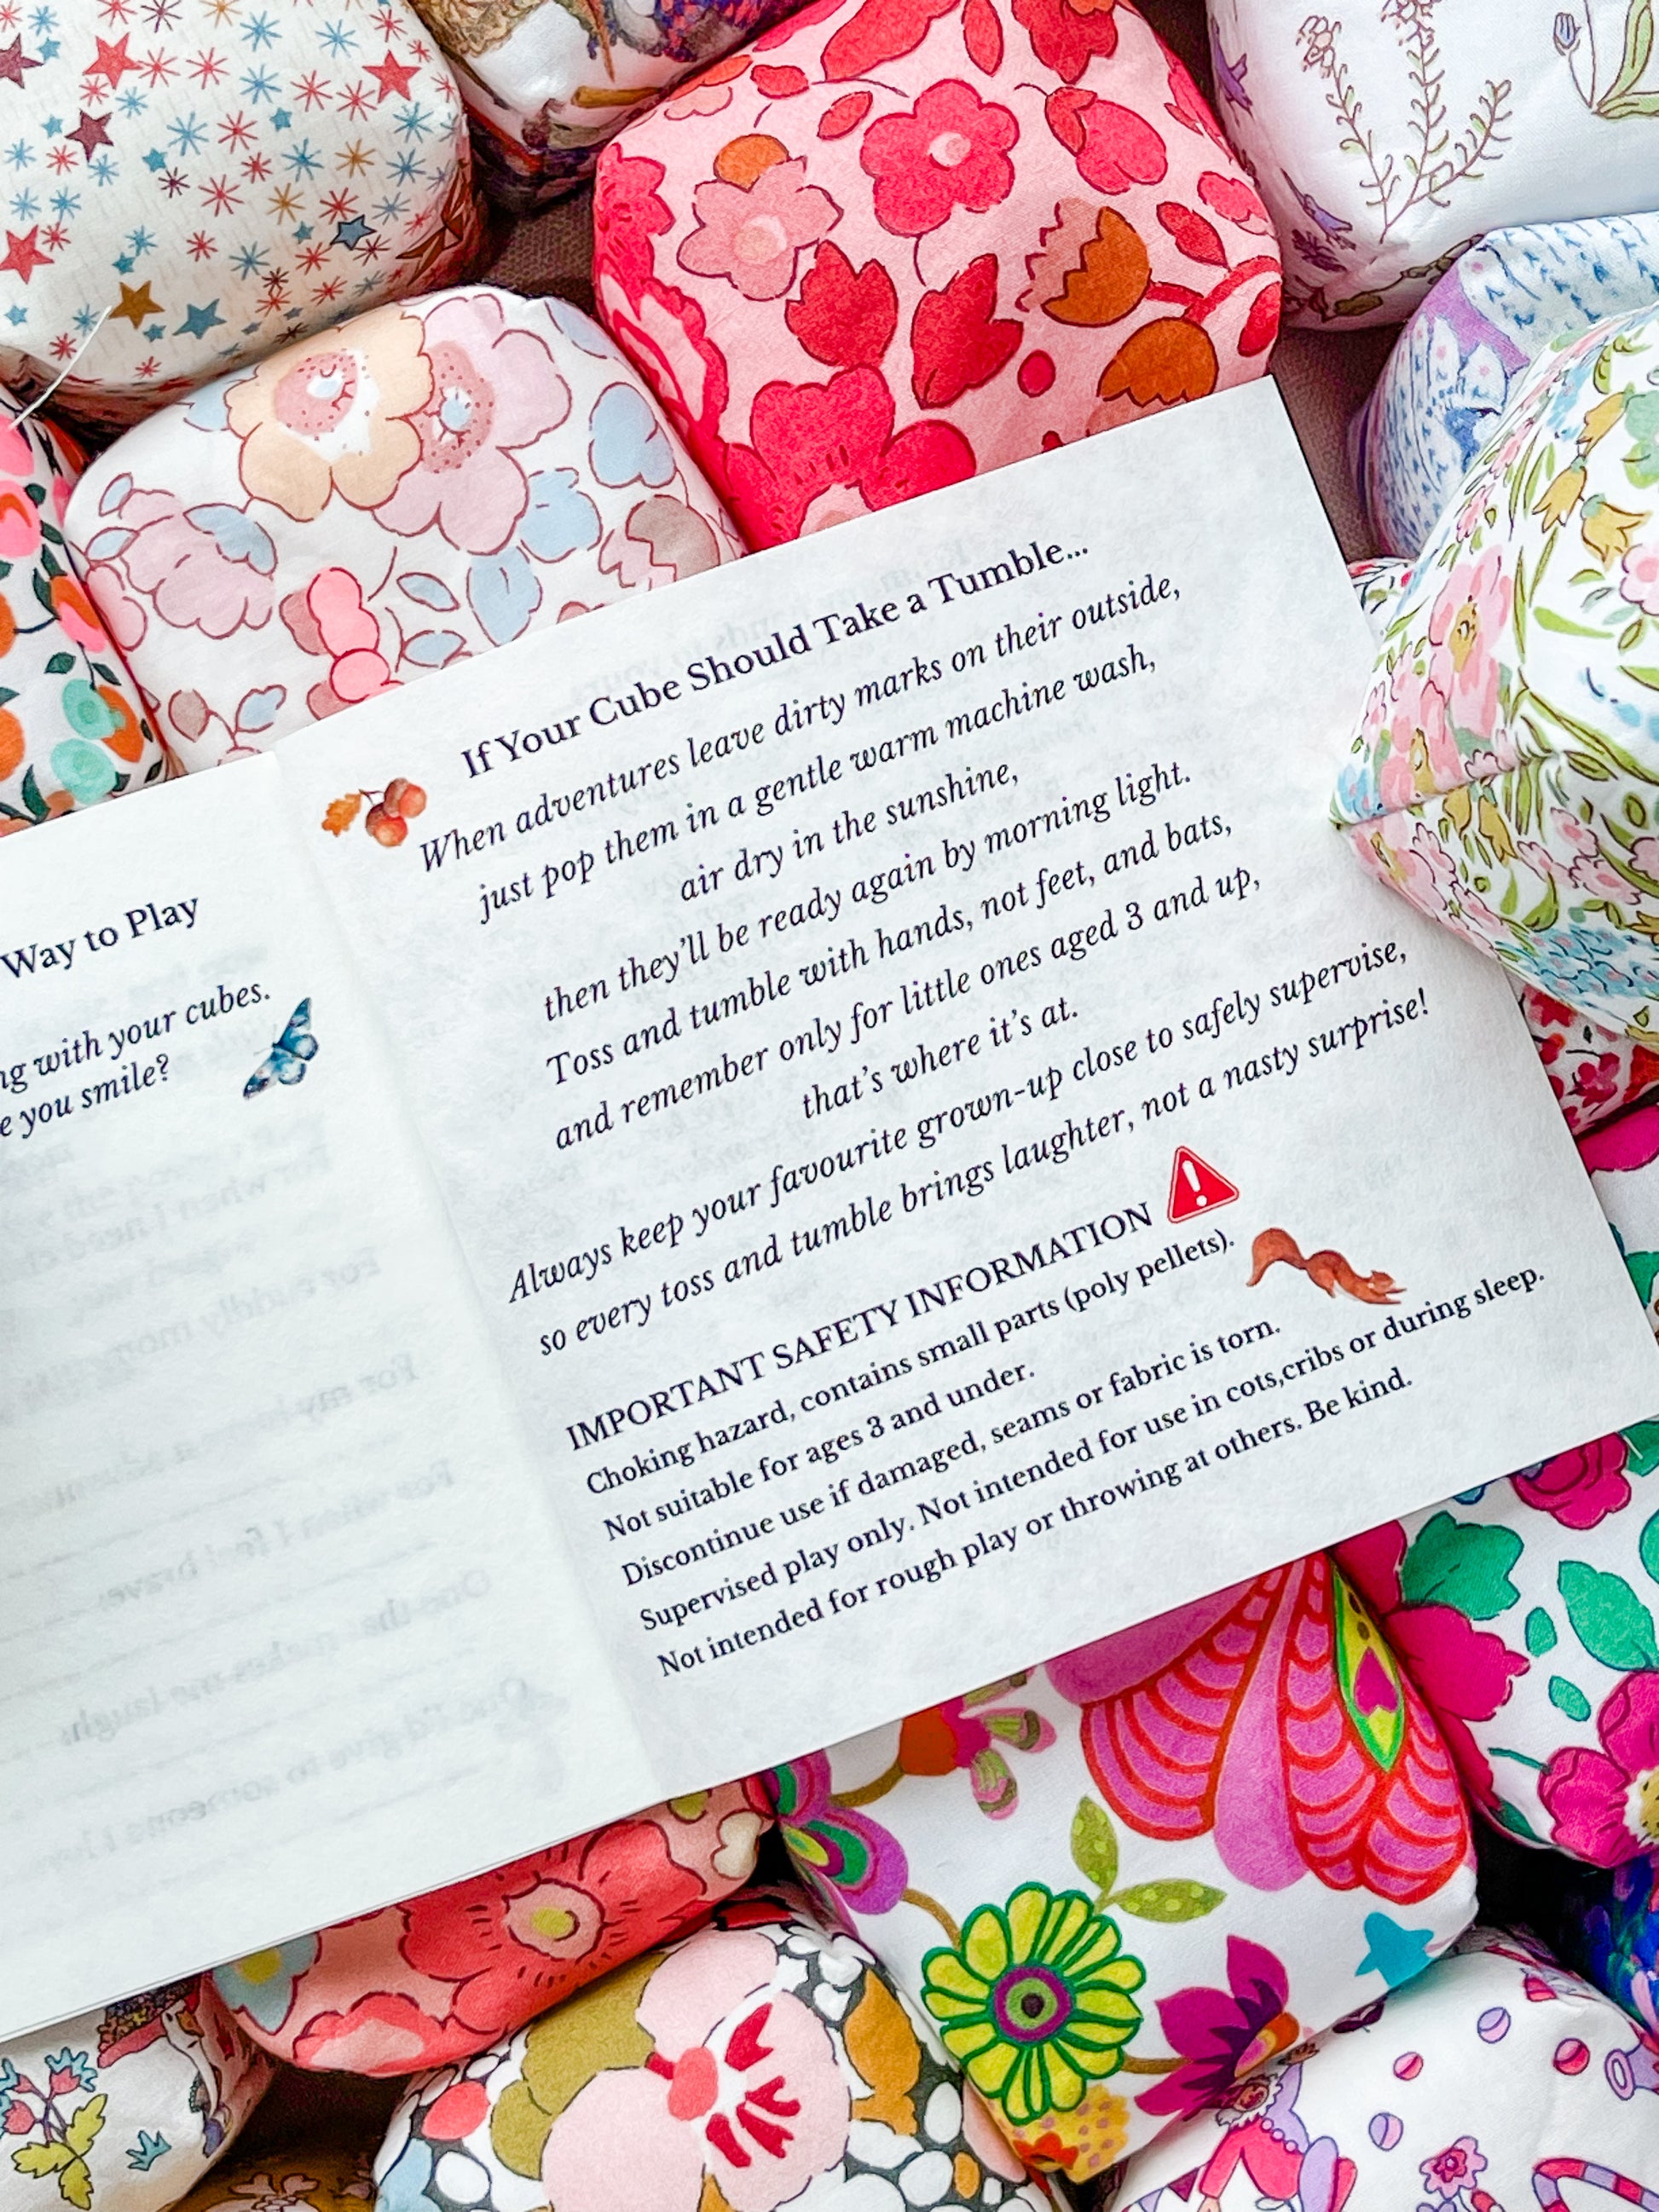 Way to Play
with your cubes.
you smile?
If Your Cube Should Take a Tumble...
When adventures leave dirty marks on their outside,
just pop them in a gentle warm machine wash,
air dry in the sunshine,
then they'll be ready again by morning light.
Toss and tumble with hands, not feet, and bats,
and remember only for little ones aged 3 and up,
that's where it's at.
Always keep your favourite grown-up close to safely supervise,
so every toss and tumble brings laughter, not a nasty surprise!
IMPORTANT SAFETY INFORMATION
Choking hazard, contains small parts (poly pellets).
Not suitable for ages 3 and under.
Discontinue use if damaged, seams or fabric is torn.
Supervised play only. Not intended for use in cots,cribs or during sleep.
Not intended for rough play or throwing at others. Be kind.